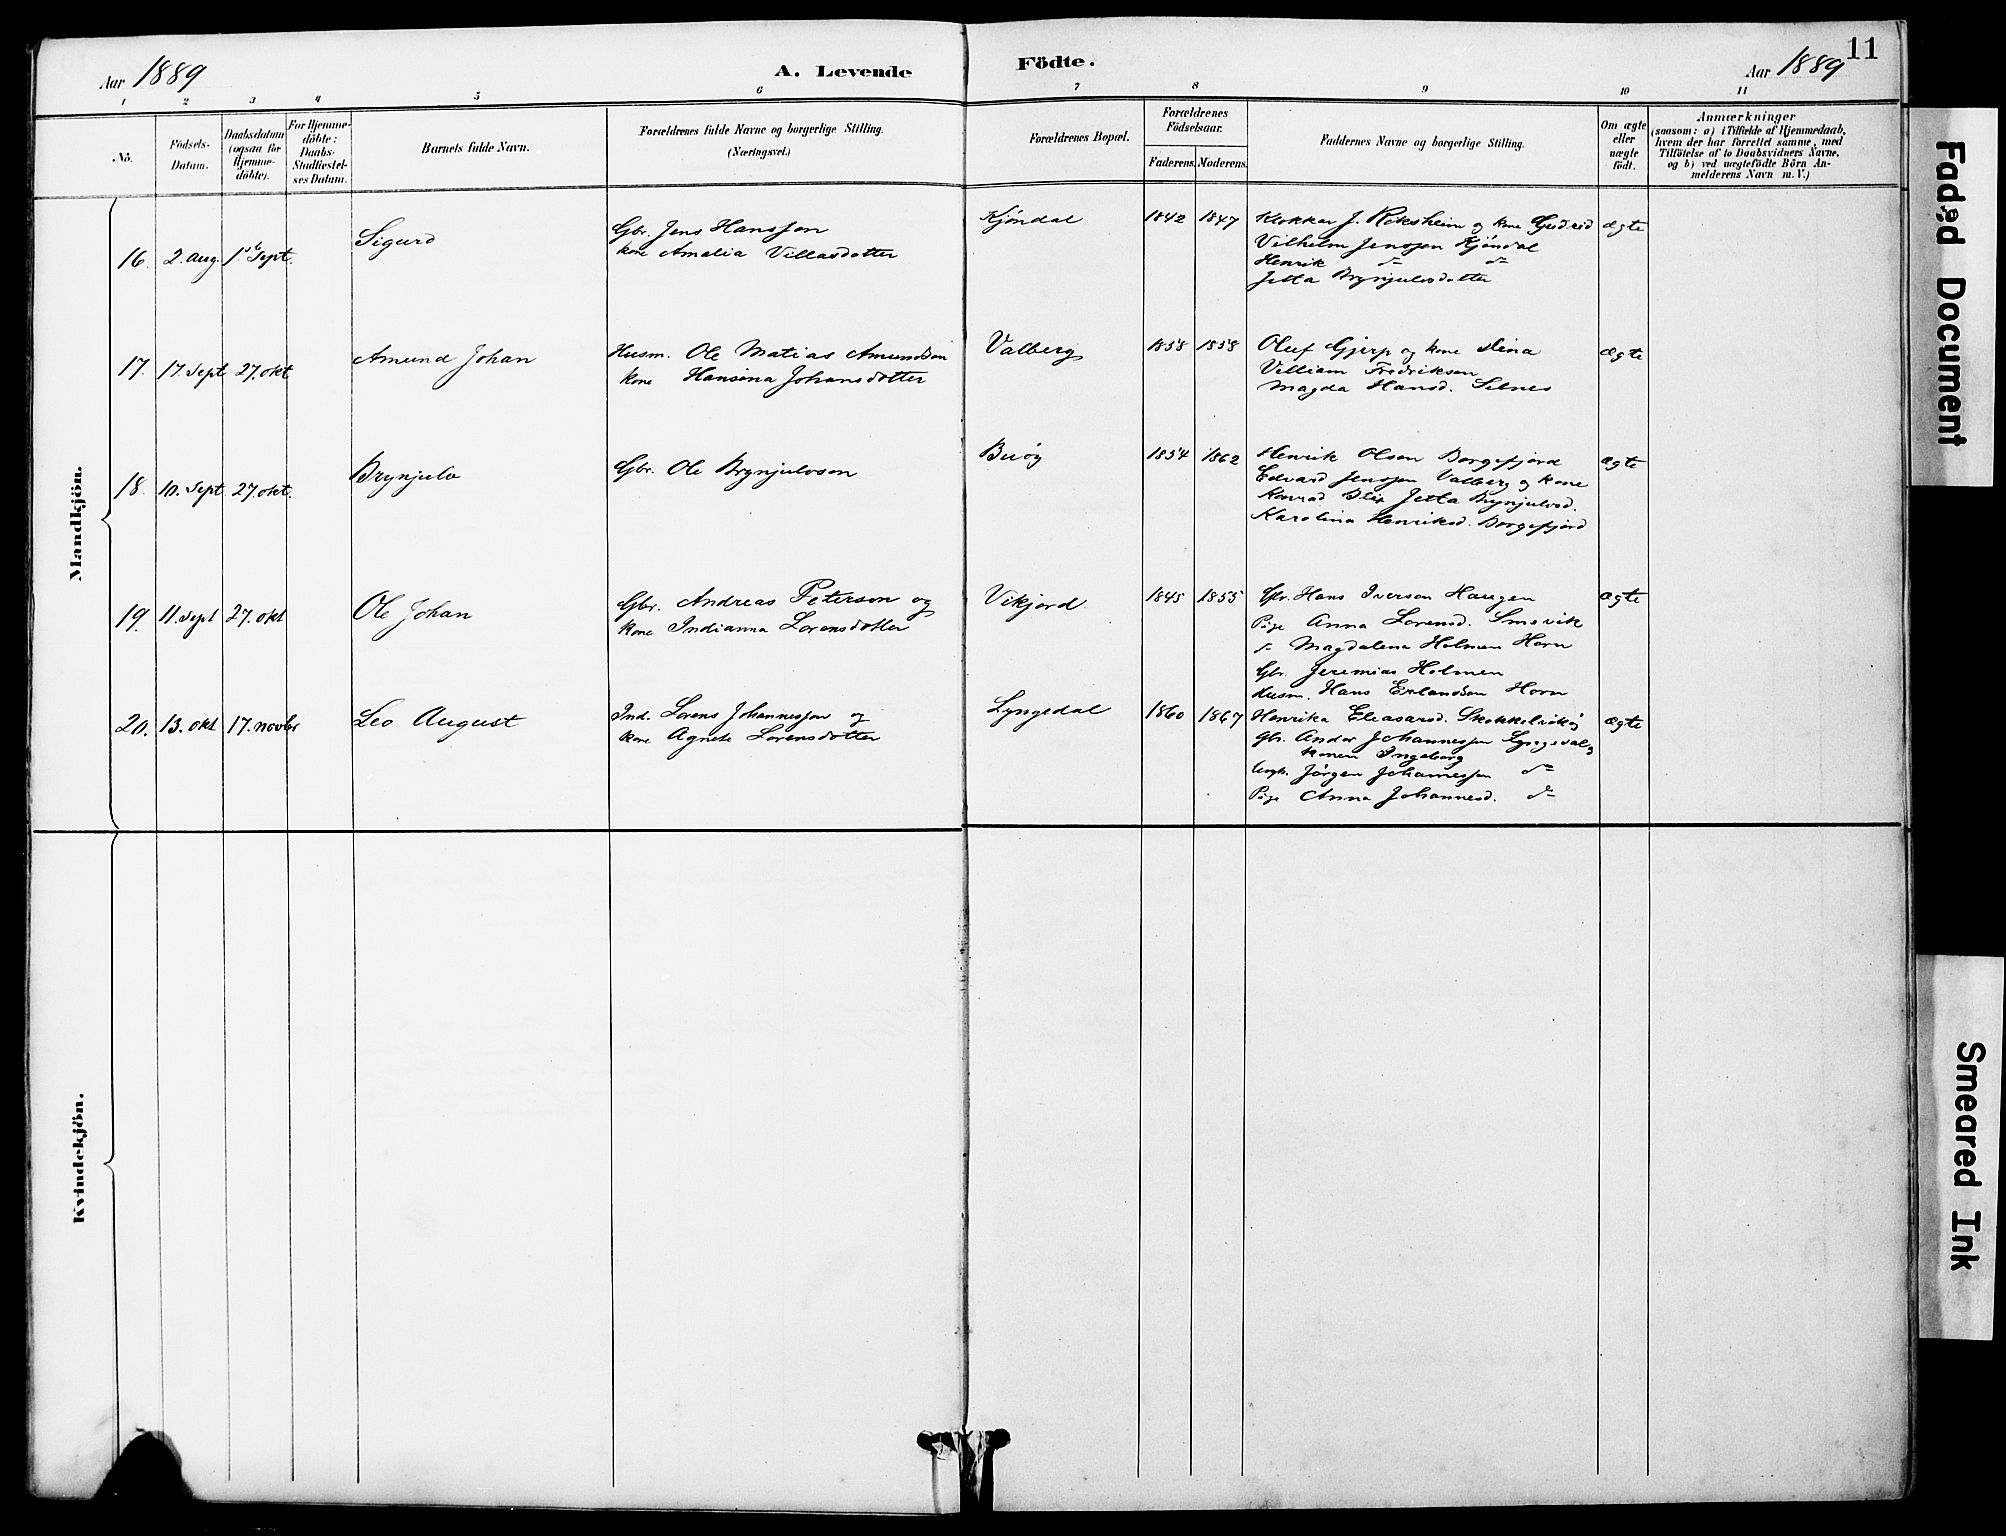 11
Aar 1889
A. Levende
Födte.
Aar 1889
1 2 3 4 5 6 7 8 9 10 11
No.
Födsels-
Datum.
Daabsdatum
(ogsaa for
Hjemme-
döbte).
For Hjemme-
döbte:
Daabs-
Stadfæstel-
ses Datum.
Barnets fulde Navn.
Forældrenes fulde Navne og borgerlige Stilling.
(Næringsvei.)
Forældrenes Bopæl.
Forældrenes
Födselsaar.
Faderens. Moderens.
Faddernes Navne og borgerlige Stilling.
Om ægte
eller
uægte
födt.
Anmærkninger
(saasom: a) i Tilfælde af Hjemmedaab,
hvem der har forrettet samme, med
Tilföielse af to Daabsvidners Navne,
og b) ved uægtefödte Börn An-
melderens Navn m. V.)
Mandkjön.
16. 2. aug. 1. Sept. Sigurd
Gbr. Jens Hanssen
kone Amalia Villasdatter
Kjöndal 1842 1847
Klokkar J. Reksheim og kone Gudrid
Vilhelm Jenssen Kjöndal
Henrik
Jetta Brynjulvsdatter
ægte
17. 17. Sept 27. okt Amund Johan
Husm. Ole Matias Amundsen
kone Hansina Johansdotter
Valberg 1858 1858
Oluf Gjerp og kone Nina
Villiam Fredriksen
Magda Hansd. Selnes
ægte
18. 10. Sept 27. okt. Brynjulv
Gbr. Ole Brynjulvson
Buöy 1854 1862
Henrik Olsen Borgefjord
Edvard Jenssen Valberg og kone
Konrad Blix Jetta Brynjulvsd.
Karolina Henriksd. Borgefjord
ægte
19. 11. Sept 27. okt Ole Johan
Gbr. Andreas Peterson og
kone Indianna Lorensdotter
Vikjord 1845 1855
Gbr. Hans Iverson Haugen
Pige Anna Lorensd. Smevik
Magdalena Holmen Horn
Gbr. Jeremias Holmen
Husm. Hans Erlandsen Horn
ægte
20. 13. okt 17. novbr Leo August
Ind. Lorens Johannessen og
kone Agnete Lorensdotter
Lyngedal 1860 1867
Henrika Eleasarsd.
Gbr. Andor Johannessen Lyngedal og
konen Ingeborg
Ungk. Jörgen Johannessen
Pige Anna Johannesd.
ægte
Kvindekjön.
Faded Document
Smeared Ink